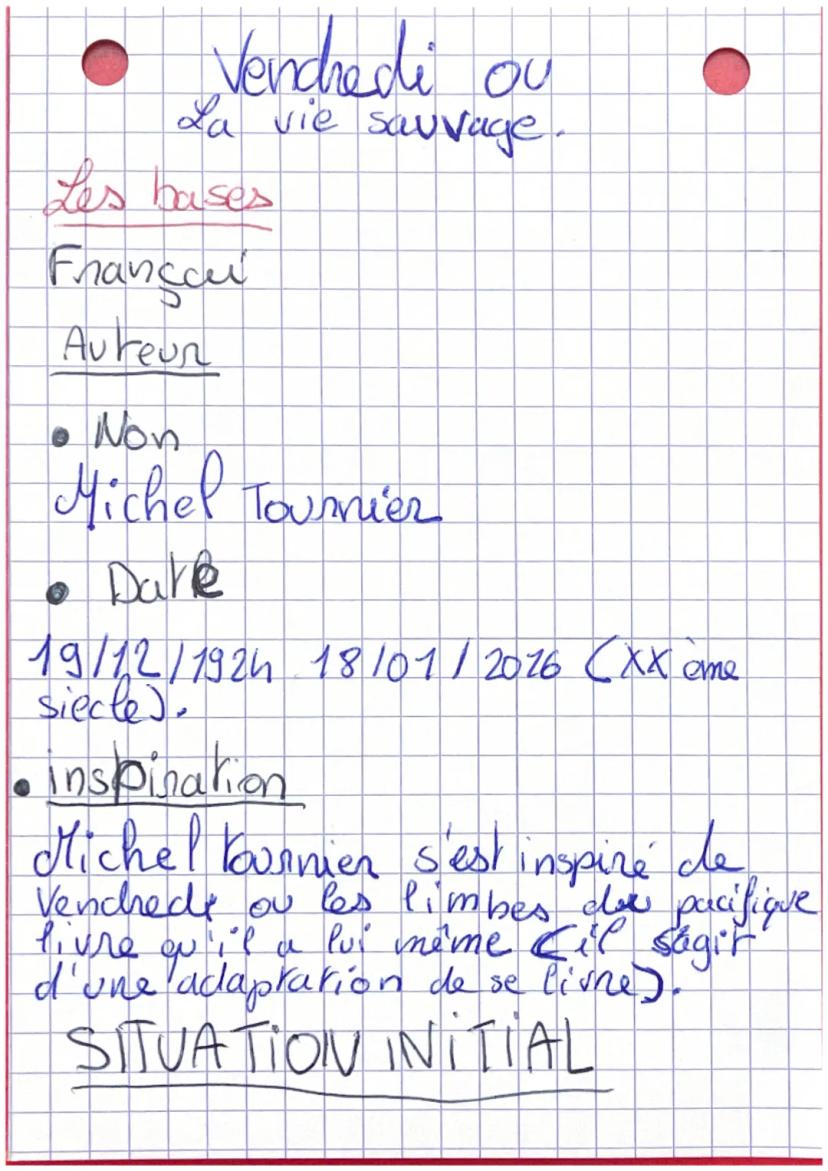 Vendredi ou
La vie sauvage.
Les bases
Françai
Auteur
• Non
Michel Tournier
• Date
19/12/1924 18/01/2016 (XXème
siècle).
• inspiration
Michel tournier s'est inspiré de
Vendredi ou les limbes du pacifique
livre qu'il a lui même (il sagit
d'une adaptation de se livre).
SITUATION INITIAL